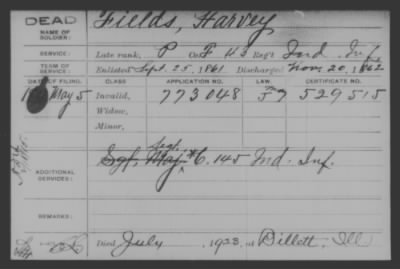 DEAD
NAME OF SOLDIER:
Fields, Harvey
SERVICE:
Late rank, P Co. F 43 Reg't Ind. Inf.
TERM OF SERVICE:
Enlisted Sept. 25, 1861 Discharged Nov. 20, 1862
DATE OF FILING. CLASS. APPLICATION NO. LAW. CERTIFICATE NO.
May 5 Invalid, 773048 529515
Widow,
Minor,
ADDITIONAL SERVICES:
Sgt. Maj. Sergt. & C. 145 Ind. Inf.
REMARKS:
Died July 1923 at Billett, Ill